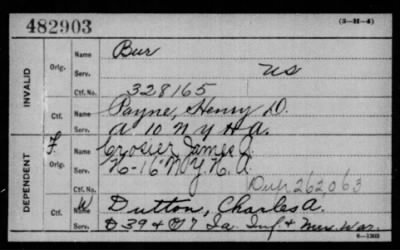 482903
(3-H-4)
INVALID
Orig.
Name Bur
Serv. US
Ctf. No. 328165
Ctf. Name Payne, Henry D.
Serv. A 10 N Y H A.
DEPENDENT
F. Orig. Name Crosier James A.
Serv. K-16" N. Y. H. A.
Ctf. No. Dup 262063
W Ctf. Name Dutton, Charles A.
Serv. D 39 & G 7 Ia Inf & Mex. War.
6-1303